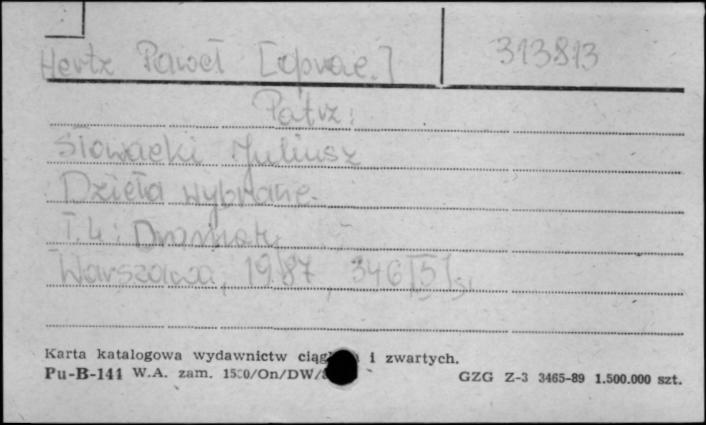 Hertz Paweł [oprac.] 313813
Patrz:
Słowacki Juliusz
Dzieła wybrane.
T. 4: Dramaty
Warszawa, 1987, 346[5] s.
Karta katalogowa wydawnictw i zwartych.
Pu-B-141 W.A. zam. GZG Z-3 3465-89 1.500.000 szt.